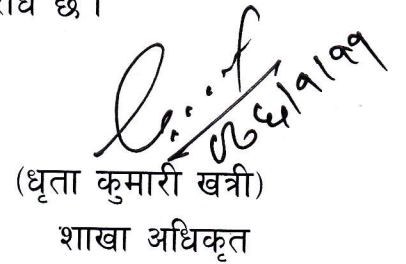 छ ।
०७६/१/११
(धृता कुमारी खत्री)
शाखा अधिकृत